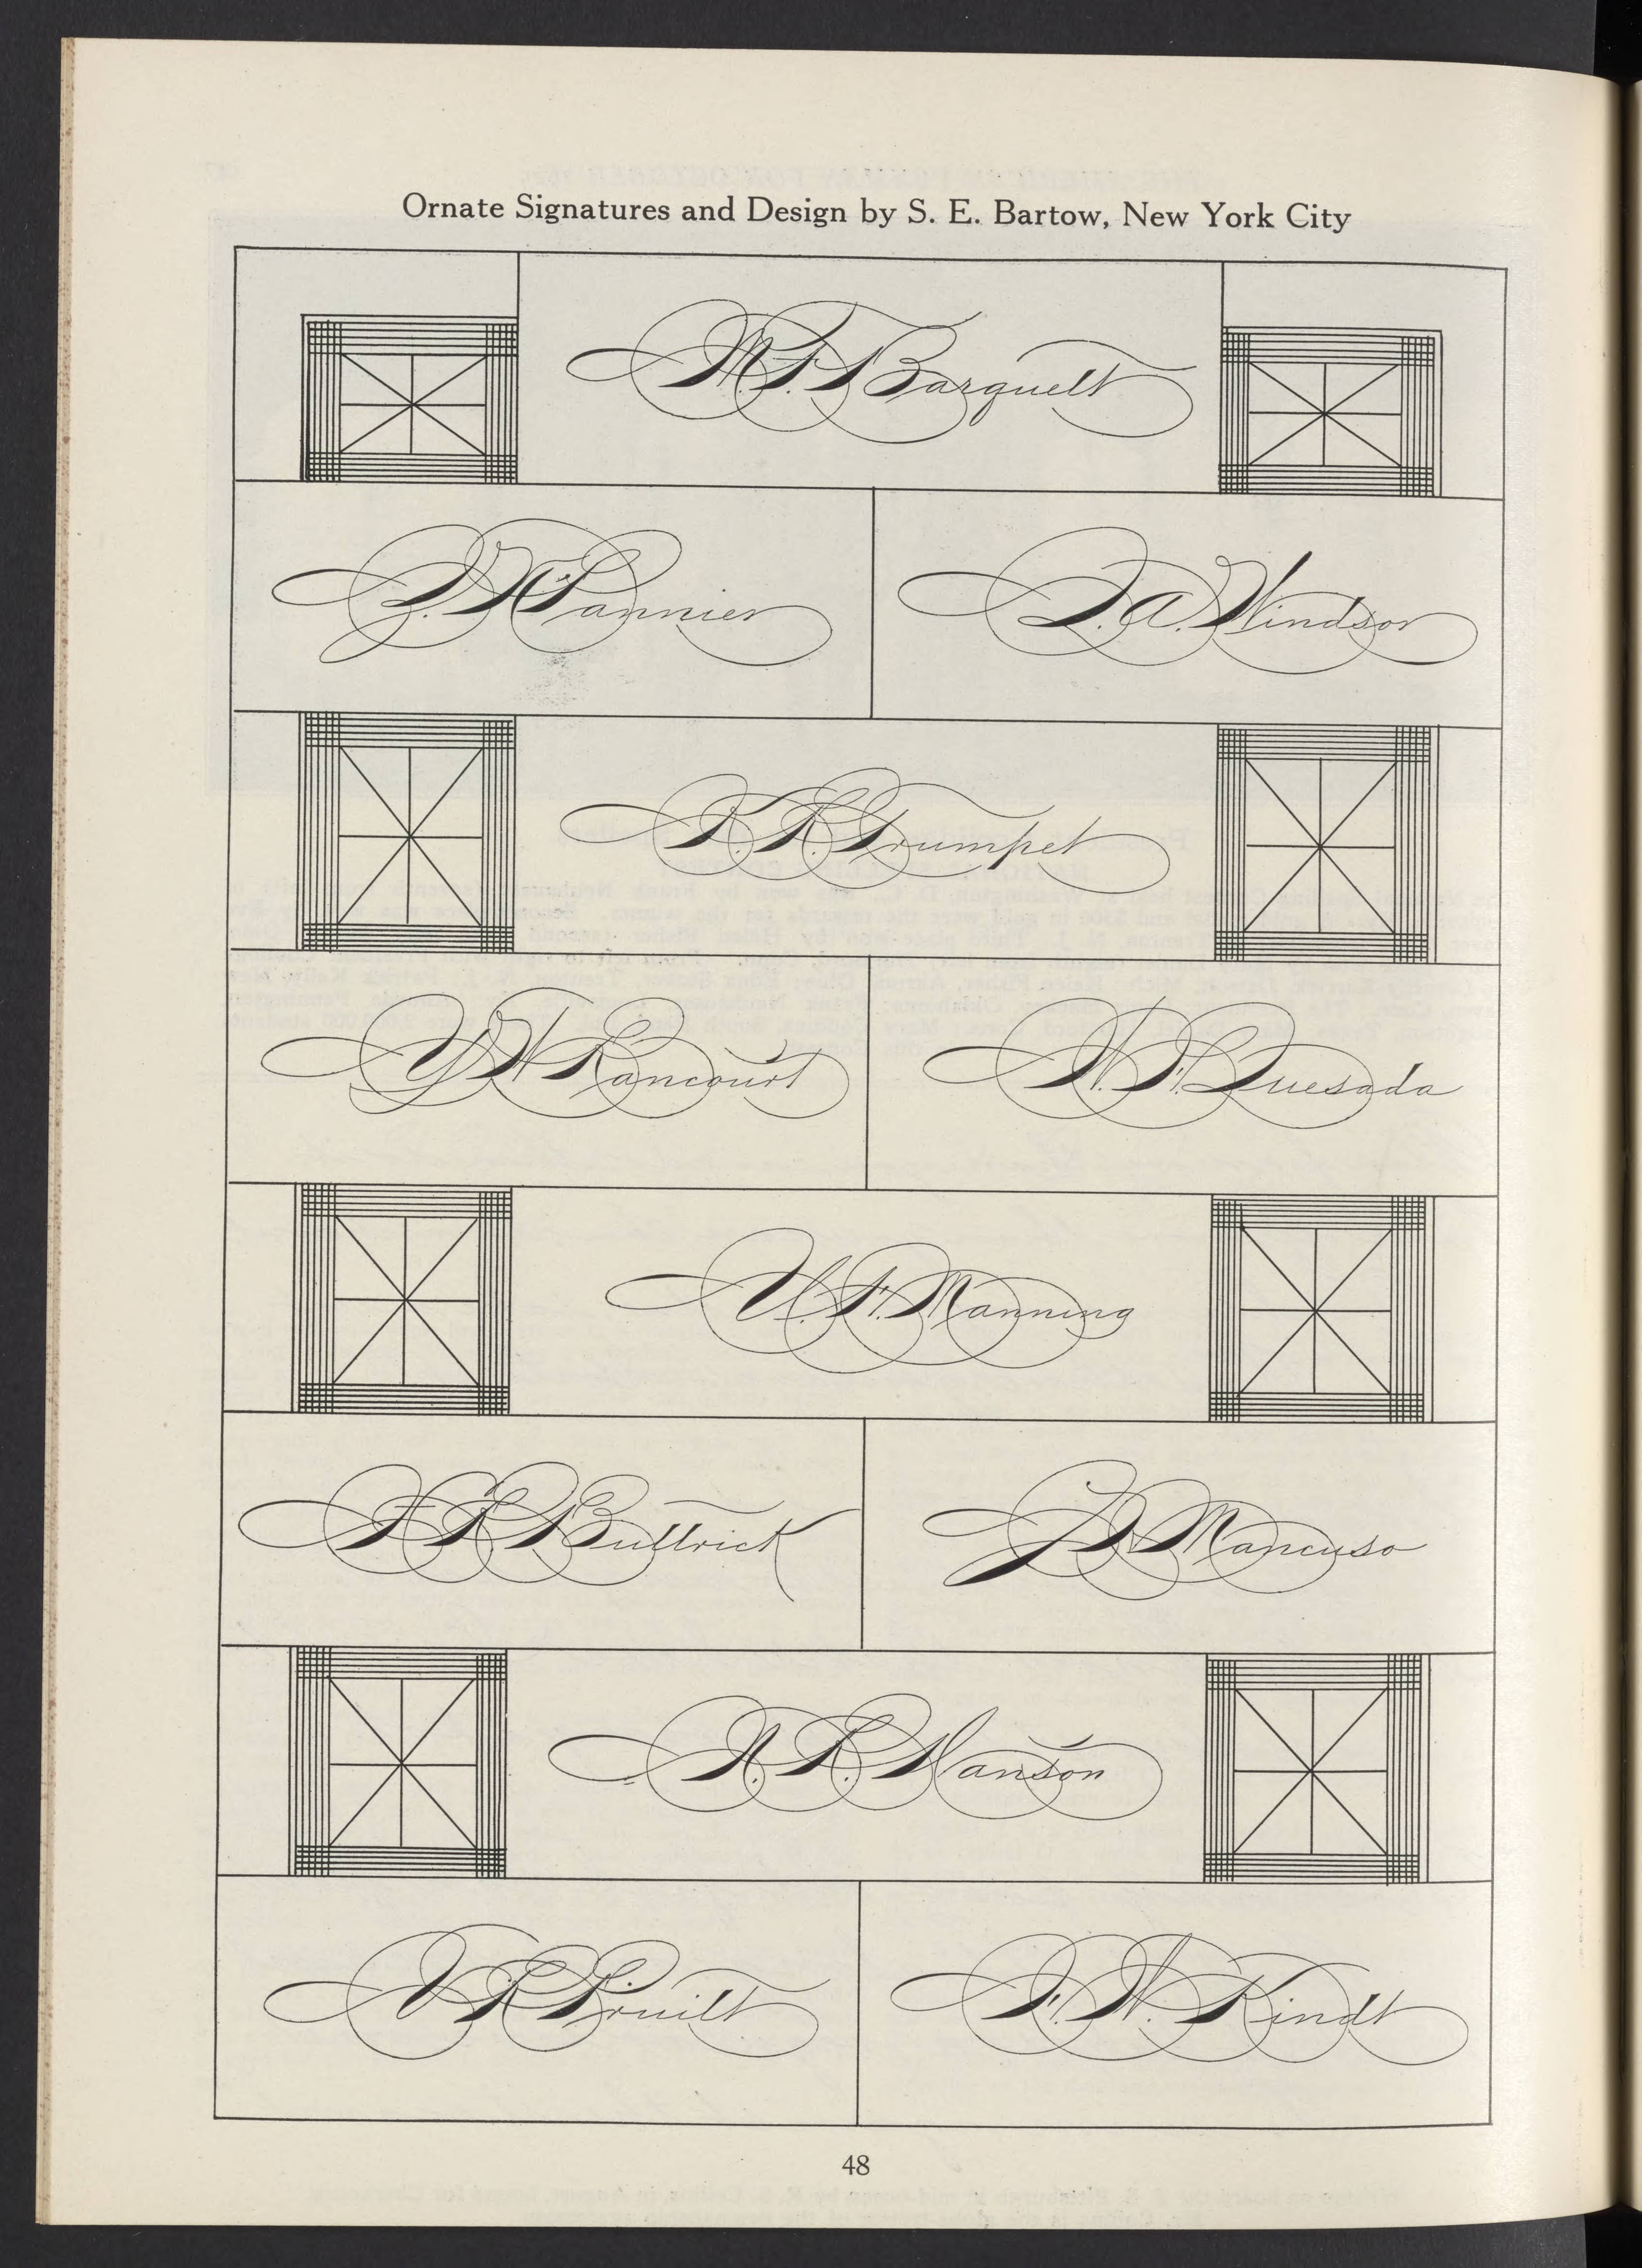 Ornate Signatures and Design by S. E. Bartow, New York City
M. F. Barquelt
Z. W. Pannier
D. A. Windsor
T. R. Trumpet
Y. W. Rancourt
W. F. Quesada
U. F. Manning
F. R. Bullrick
J. D. Mancuso
N. R. Hanson
V. R. Pruilt
F. W. Kindt
48